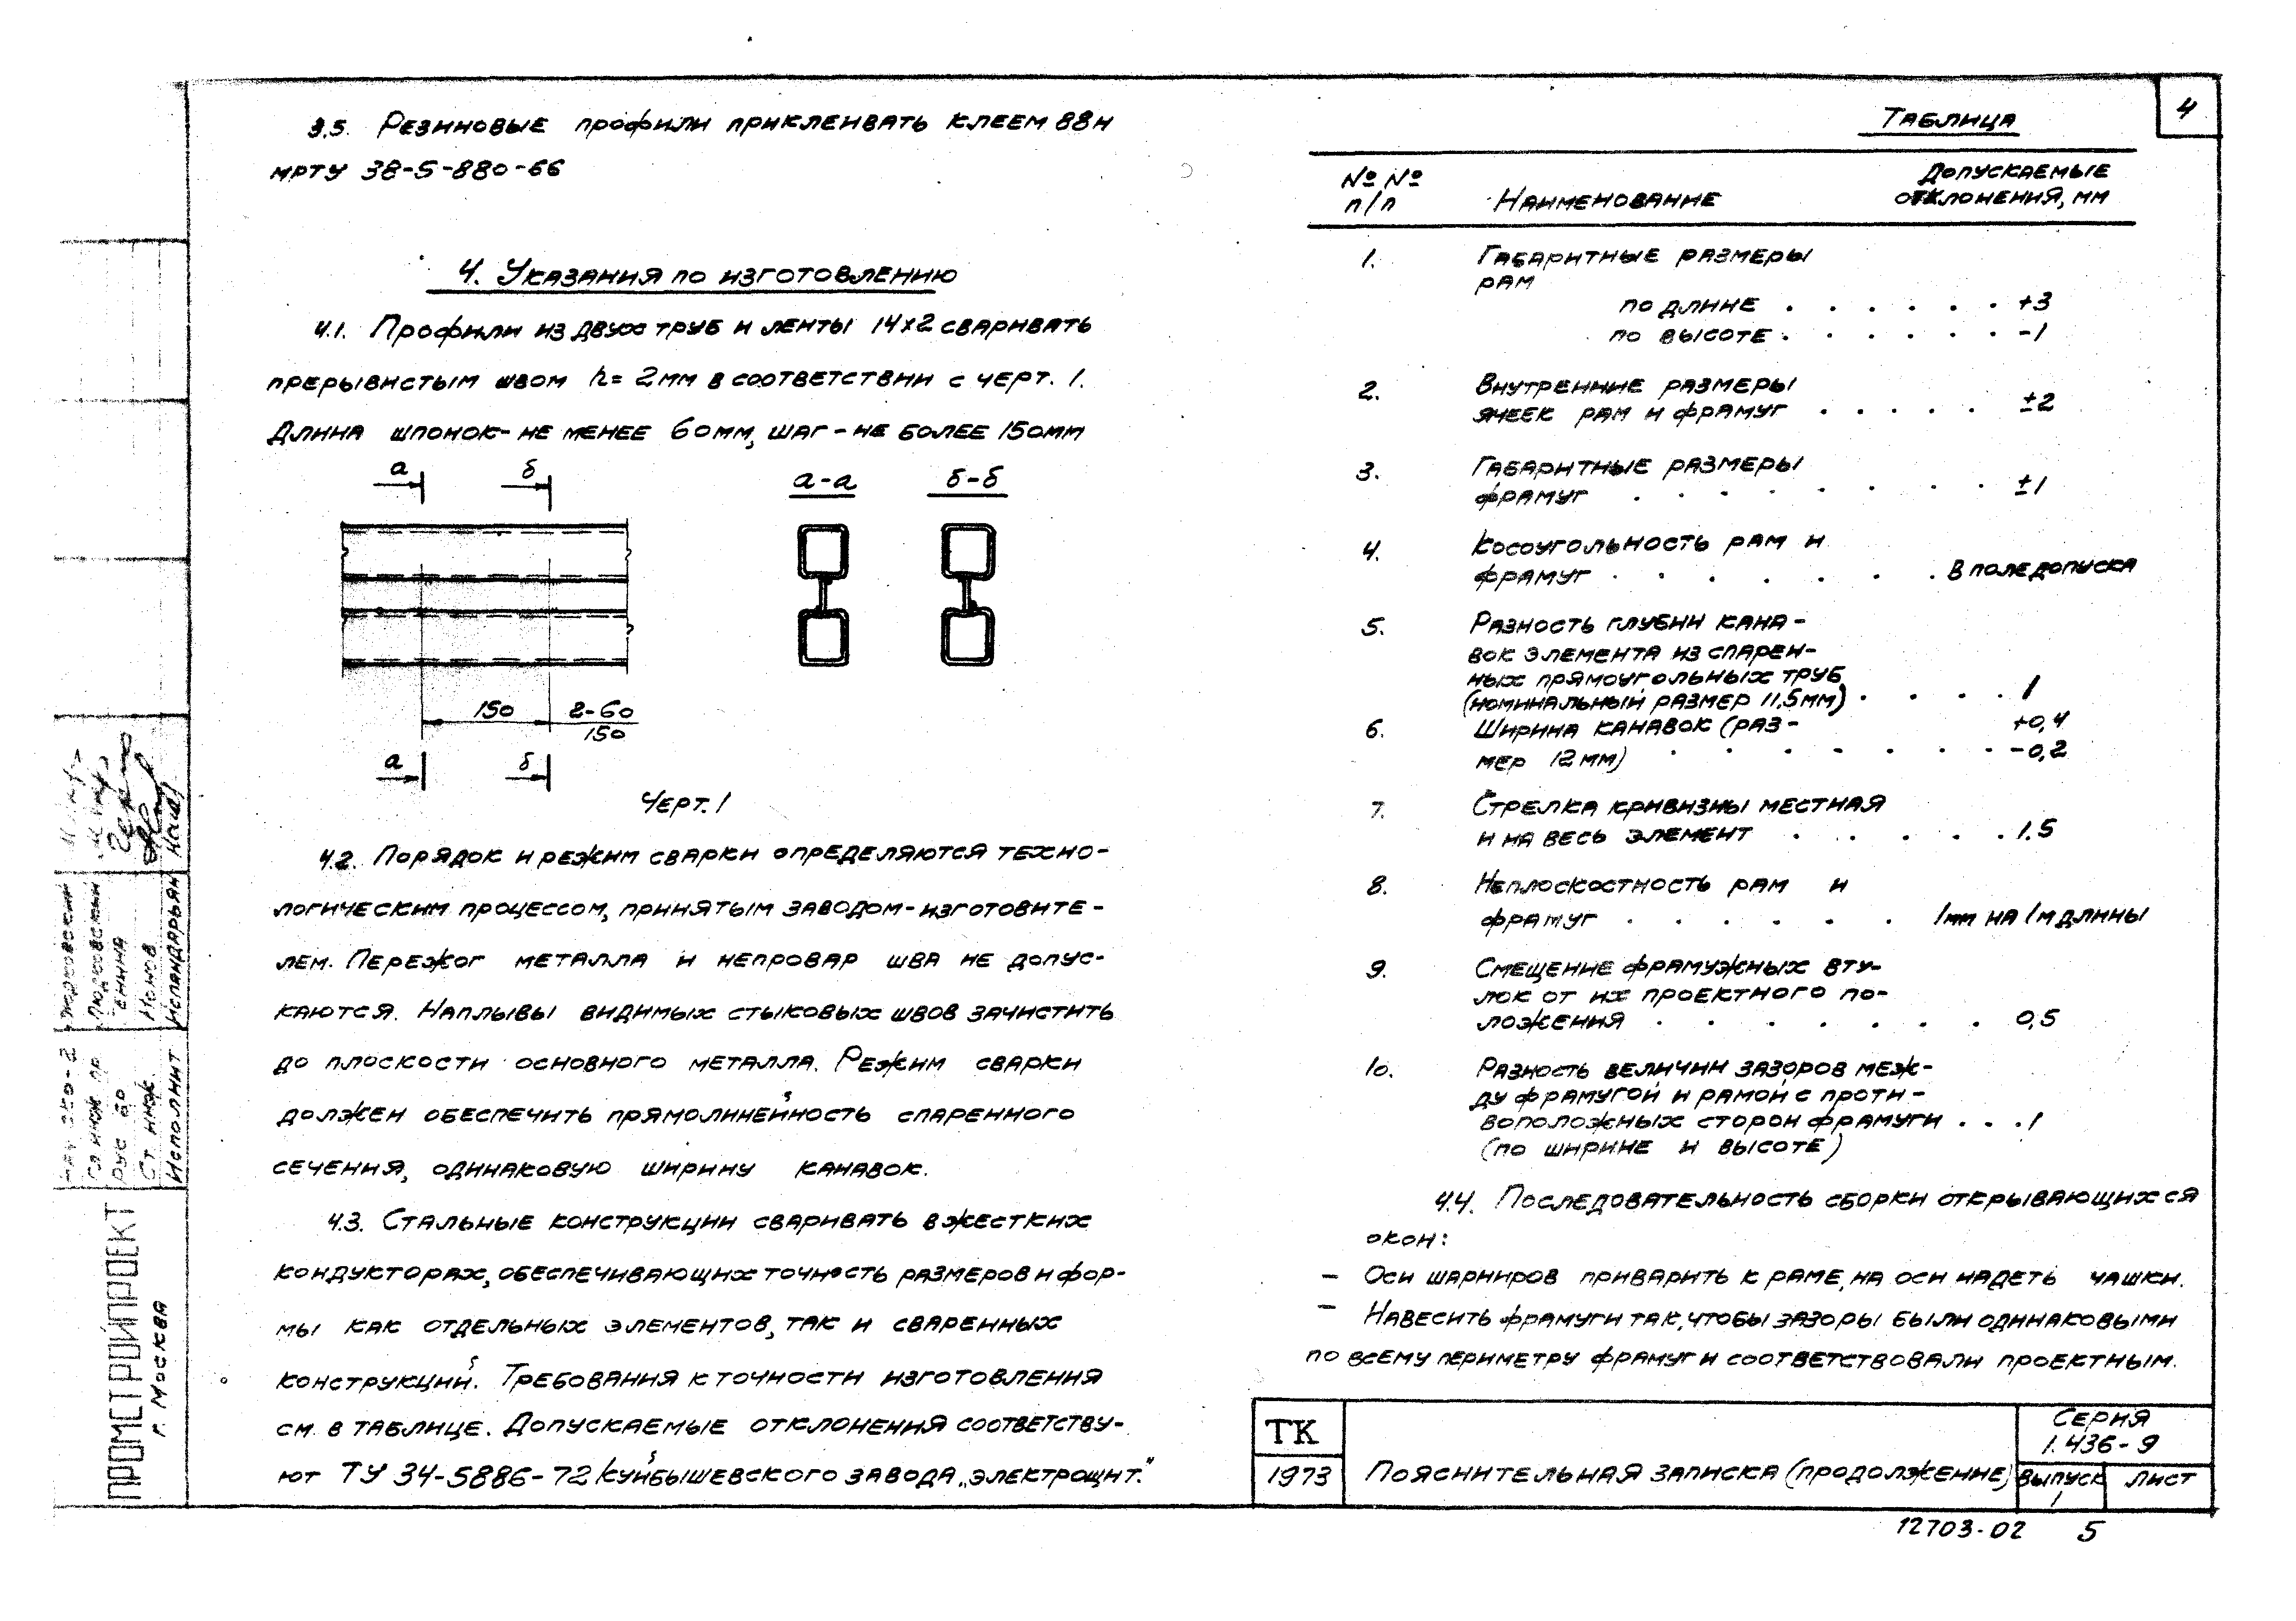 3.5. Резиновые профили приклеивать клеем 88н
МРТУ 38-5-880-66
4. Указания по изготовлению
4.1. Профили из двух труб и ленты 14х2 сваривать
прерывистым швом h= 2мм в соответствии с черт. 1.
Длина шпонок-не менее 60мм, шаг-не более 150мм
а б
а-а б-б
150 2-60
150
а б
Черт. 1
4.2. Порядок и режим сварки определяются техно-
логическим процессом, принятым заводом-изготовите-
лем. Пережог металла и непровар шва не допус-
каются. Наплывы видимых стыковых швов зачистить
до плоскости основного металла. Режим сварки
должен обеспечить прямолинейность спаренного
сечения, одинаковую ширину канавок.
4.3. Стальные конструкции сваривать в жестких
кондукторах, обеспечивающих точность размеров и фор-
мы как отдельных элементов, так и сваренных
конструкций. Требования к точности изготовления
см. в таблице. Допускаемые отклонения соответству-
ют ТУ 34-5886-72 Куйбышевского завода „Электрощит."
4
Таблица
№ №
п/п
Наименование
Допускаемые
отклонения, мм
1. Габаритные размеры
рам
по длине . . . . . . +3
по высоте . . . . . . -1
2. Внутренние размеры
ячеек рам и фрамуг . . . . . ±2
3. Габаритные размеры
фрамуг . . . . . . . . ±1
4. Косоугольность рам и
фрамуг . . . . . . . В поле допуска
5. Разность глубин кана-
вок элемента из спарен-
ных прямоугольных труб
(номинальный размер 11,5мм) . . . . 1
6. Ширина канавок (раз- +0,4
мер 12мм) . . . . . . . -0,2
7. Стрелка кривизны местная
и на весь элемент . . . . . 1.5
8. Неплоскостность рам и
фрамуг . . . . . . 1мм на 1м длины
9. Смещение фрамужных вту-
лок от их проектного по-
ложения . . . . . . . 0,5
10. Разность величин зазоров меж-
ду фрамугой и рамой с проти-
воположных сторон фрамуги . . . 1
(по ширине и высоте)
4.4. Последовательность сборки открывающихся
окон:
– Оси шарниров приварить к раме, на оси надеть чашки.
– Навесить фрамуги так, чтобы зазоры были одинаковыми
по всему периметру фрамуг и соответствовали проектным.
ТК
1973
Пояснительная записка (продолжение)
Серия
1.436-9
Выпуск
1
Лист
12703-02 5
Гл инж пр Людковский
Рус бр
Ст. инж. Нонов
Исполнит Испандарьян
ПРОМСТРОЙПРОЕКТ
г. Москва